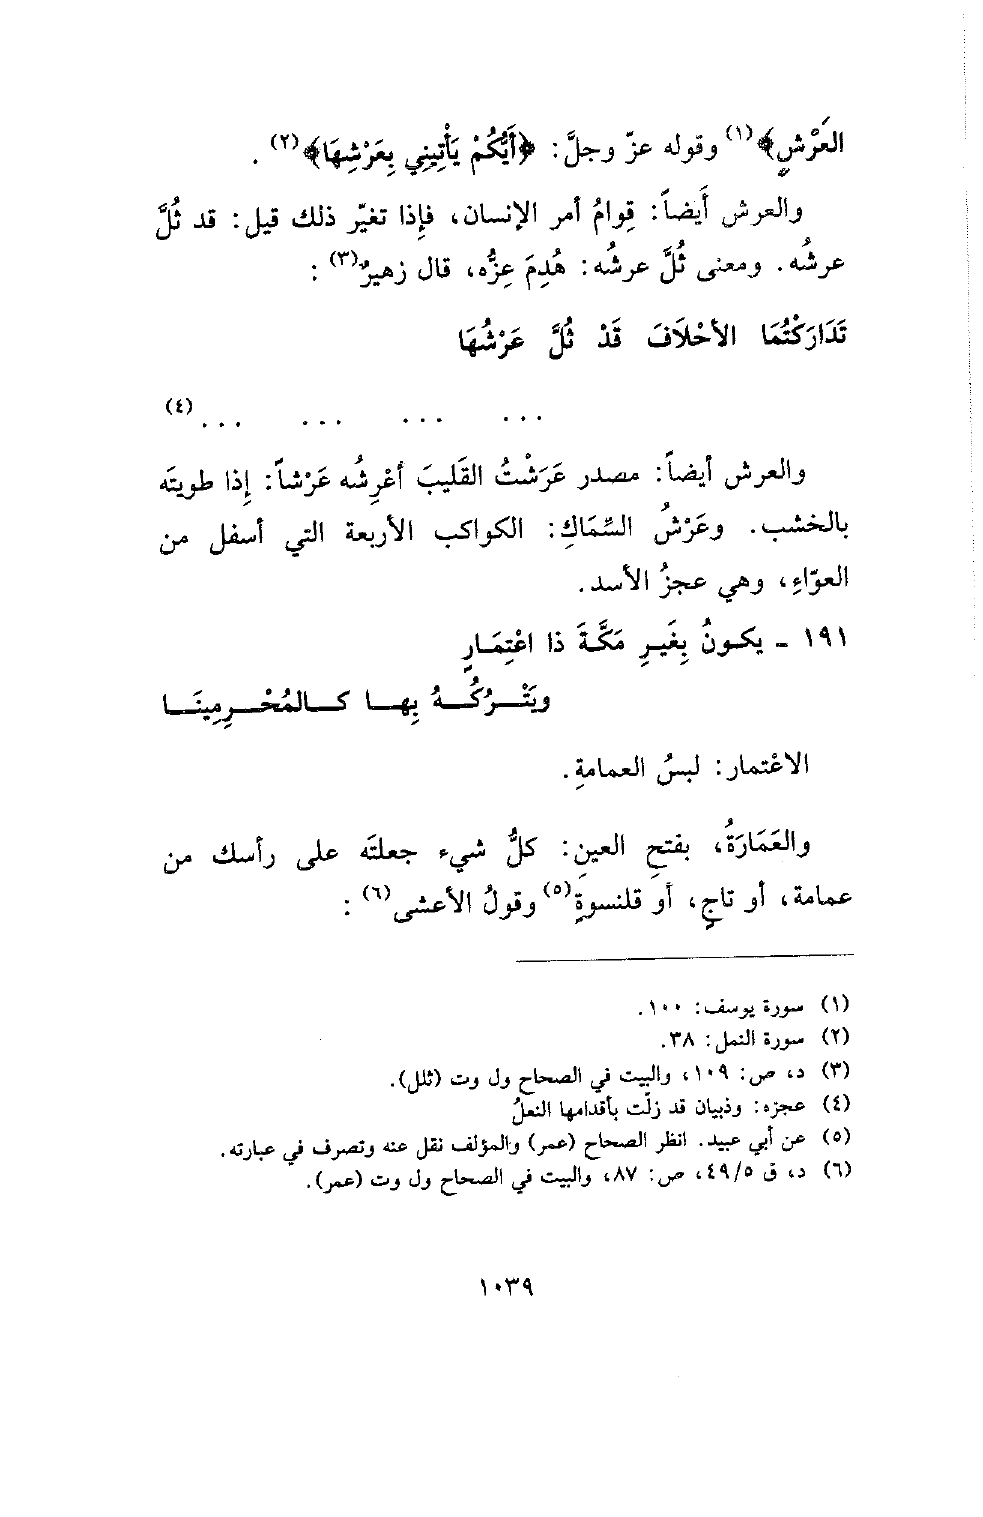 العَرْشِ﴾(١) وقوله عزّ وجلَّ: ﴿أَيُّكُمْ يَأْتِينِي بِعَرْشِهَا﴾(٢).
والعرش أَيضاً: قِوامُ أمر الإنسان، فإِذا تغيّر ذلك قيل: قد ثُلَّ
عرشُه. ومعنى ثُلَّ عرشُه: هُدِمَ عِزُّه، قال زهيرٌ(٣):
تَدَارَكْتُمَا الأحْلَافَ قَدْ ثُلَّ عَرْشُهَا
... ... ... ...(٤)
والعرش أيضاً: مصدر عَرَشْتُ القَليبَ أعْرِشُه عَرْشاً: إِذا طويتَه
بالخشب. وعَرْشُ السِّمَاكِ: الكواكب الأربعة التي أسفل من
العوّاءِ، وهي عجزُ الأسد.
١٩١ - يكونُ بِغَيرِ مَكَّةَ ذا اعْتِمَارٍ
ويَتْرُكُهُ بِها كالمُحْرِمِينَا
الاعْتمار: لبسُ العمامةِ.
والعَمَارَةُ، بفتحِ العينِ: كلُّ شيء جعلتَه على رأسك من
عمامة، أو تاجٍ، أو قلنسوةٍ(٥) وقولُ الأعشى(٦):
(١) سورة يوسف: ١٠٠.
(٢) سورة النمل: ٣٨.
(٣) د، ص: ١٠٩، والبيت في الصحاح ول وت (ثلل).
(٤) عجزه: وذبيان قد زلّت بأقدامها النعلُ
(٥) عن أبي عبيد. انظر الصحاح (عمر) والمؤلف نقل عنه وتصرف في عبارته.
(٦) د، ق ٤٩/٥، ص: ٨٧، والبيت في الصحاح ول وت (عمر).
١٠٣٩